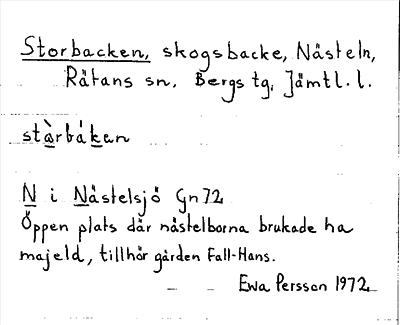 Storbacken, skogsbacke, Nästeln,
Rätans sn, Bergs tg, Jämtl. l.
stàrbákan
N i Nästelsjö Gn72
Öppen plats där nästelborna brukade ha
majeld, tillhör gården Fall-Hans.
Ewa Persson 1972